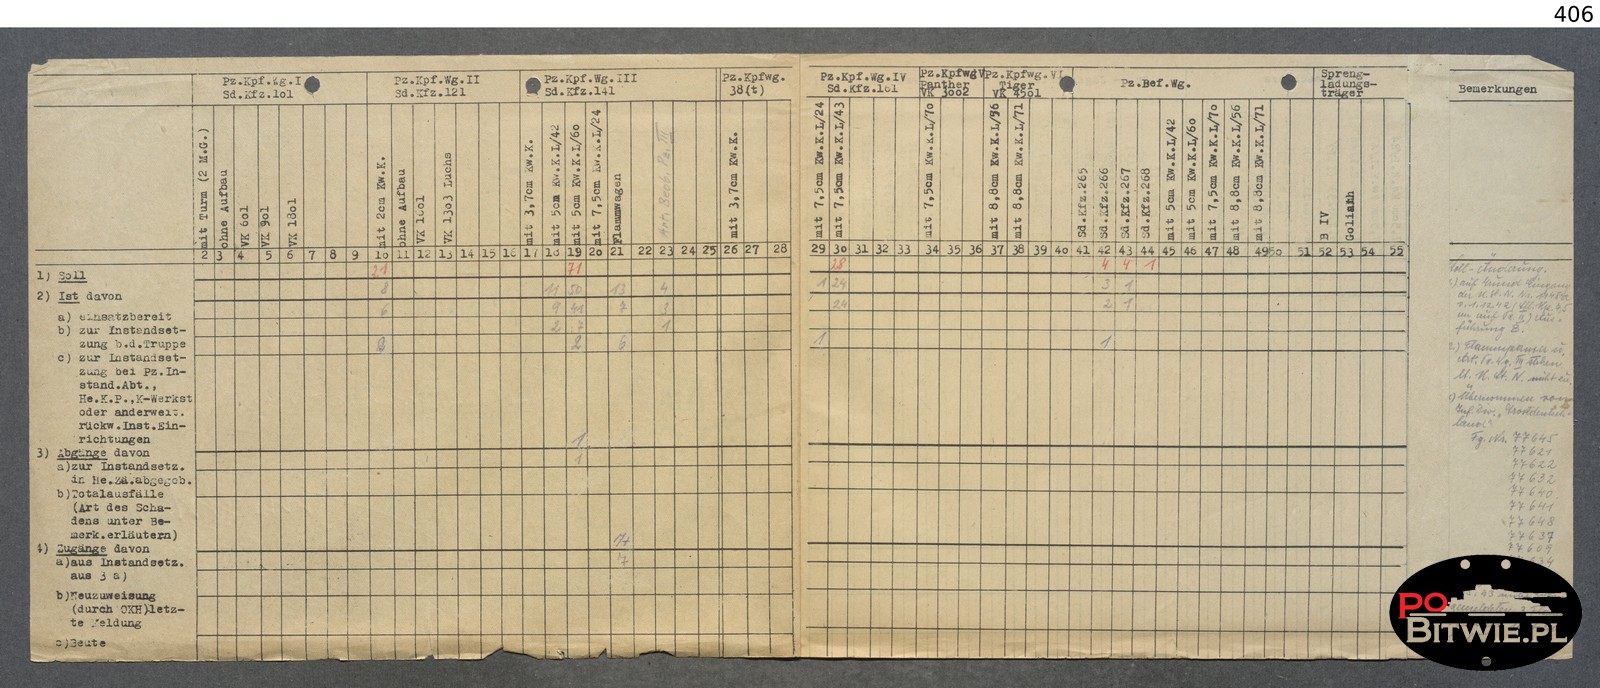 406
Pz.Kpf.Wg.I
Sd.Kfz.1o1
Pz.Kpf.Wg.II
Sd.Kfz.121
Pz.Kpf.Wg.III
Sd.Kfz.141
Pz.Kpfwg.
38(t)
Pz.Kpf.Wg.IV
Sd.Kfz.1o1
Pz.KpfwgV
Panther
VK 3oo2
Pz.Kpfwg.VI
Tiger
VK 45o1
Pz.Bef.Wg.
Spreng-
ladungs-
träger
Bemerkungen
mit Turm (2 M.G.)
ohne Aufbau
VK 6o1
VK 9o1
VK 18o1
mit 2cm Kw.K.
ohne Aufbau
VK 16o1
VK 13o3 Luchs
mit 3,7cm Kw.K.
mit 5cm Kw.K.L/42
mit 5cm Kw.K.L/6o
mit 7,5cm Kw.K.L/24
Flammwagen
mit 3,7cm Kw.K.
mit 7,5cm Kw.K.L/24
mit 7,5cm Kw.K.L/43
mit 7,5cm Kw.K.L/7o
mit 8,8cm Kw.K.L/56
mit 8,8cm Kw.K.L/71
Sd.Kfz.265
Sd.Kfz.266
Sd.Kfz.267
Sd.Kfz.268
mit 5cm Kw.K.L/42
mit 5cm Kw.K.L/6o
mit 7,5cm Kw.K.L/7o
mit 8,8cm Kw.K.L/56
mit 8,8cm Kw.K.L/71
B IV
Goliath
2 3 4 5 6 7 8 9 1o 11 12 13 14 15 16 17 18 19 2o 21 22 23 24 25 26 27 28 29 3o 31 32 33 34 35 36 37 38 39 4o 41 42 43 44 45 46 47 48 49 5o 51 52 53 54 55
1) Soll 21 71 28 4 4 1
2) Ist davon 8 11 50 13 4 1 24 3 1
a) einsatzbereit 6 9 41 7 3 24 2 1
b) zur Instandset- 2 7 1
zung b.d.Truppe 2 2 6 1 1
c) zur Instandset-
zung bei Pz.In-
stand.Abt.,
He.K.P.,K-Werkst
oder anderweit.
rückw.Inst.Ein-
richtungen 1
3) Abgänge davon 1
a)zur Instandsetz.
in He.Za.abgegob.
b)Totalausfälle
(Art des Scha-
dens unter Be-
merk.erläutern)
4) Zugänge davon
a)aus Instandsetz. 7
aus 3 a)
b)Neuzuweisung
(durch OKH)letz-
te Meldung
c)Beute
Soll-Änderung.
1) auf Grund Eingang
führung B.
2.) Flammpanzer u.
Übernommen von
Inf. Div. „Grossdeutsch-
land"
Fg. Nr. 77645
77621
77622
77632
77640
77641
77648
77637
77604
PO
BITWIE.PL